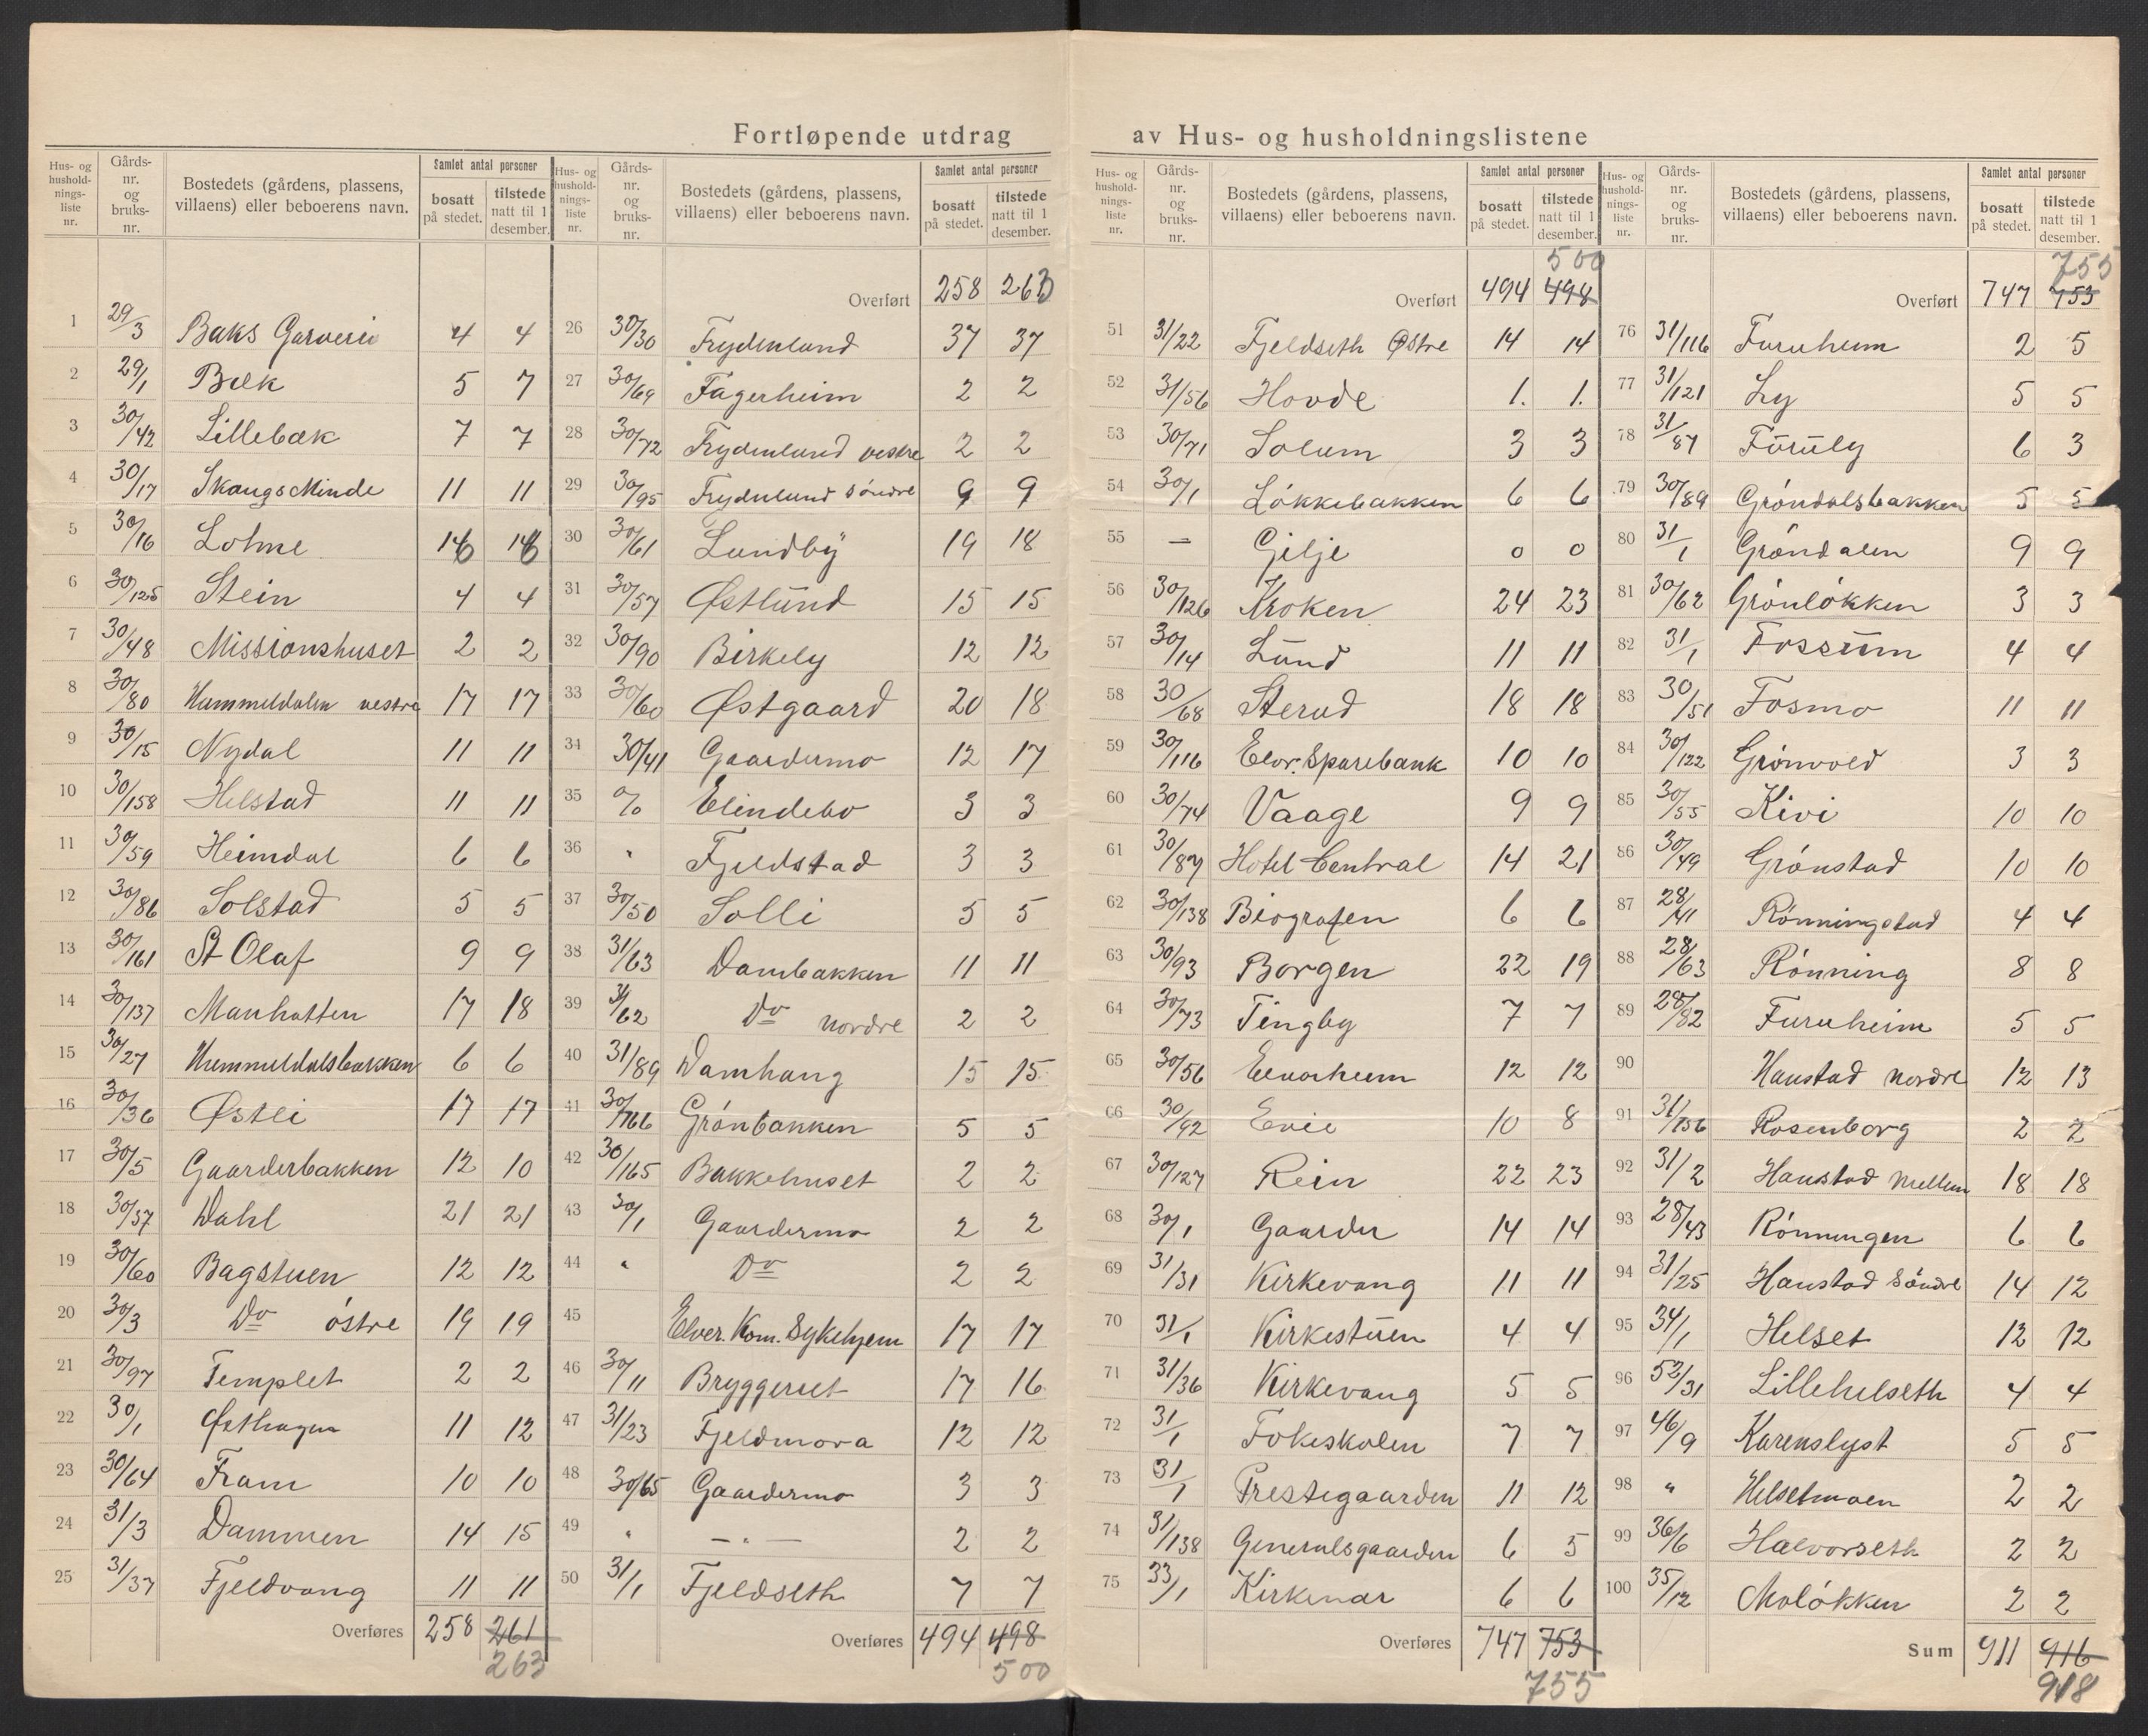 Fortløpende utdrag av Hus- og husholdningslistene
Hus- og husholdningsliste nr. | Gårds-nr. og bruks-nr. | Bostedets (gårdens, plassens, villaens) eller beboerens navn. | Samlet antal personer bosatt på stedet. | tilstede natt til 1 desember.
1 29/3 Baks Garveri 4 4
2 29/1 Bæk 5 7
3 30/42 Lillebæk 7 7
4 30/17 Skaugs Minde 11 11
5 30/16 Lohne 16 16
6 30/125 Stein 4 4
7 30/48 Missionshuset 2 2
8 30/80 Hummeldalen vestre 17 17
9 30/15 Nydal 11 11
10 30/158 Helstad 11 11
11 30/59 Heimdal 6 6
12 30/86 Solstad 5 5
13 30/161 St Olaf 9 9
14 30/137 Manhatten 17 18
15 30/27 Hummeldalsbakken 6 6
16 30/36 Østli 17 17
17 30/5 Gaarderbakken 12 10
18 30/37 Dahl 21 21
19 30/60 Bagstuen 12 12
20 30/3 Do østre 19 19
21 30/97 Templet 2 2
22 30/1 Østhagen 11 12
23 30/64 Fram 10 10
24 31/3 Dammen 14 15
25 31/37 Fjeldvang 11 11
Overføres 258 261
263
Hus- og husholdningsliste nr. | Gårds-nr. og bruks-nr. | Bostedets (gårdens, plassens, villaens) eller beboerens navn. | Samlet antal personer bosatt på stedet. | tilstede natt til 1 desember.
Overført 258 263
26 30/30 Frydenlund 37 37
27 30/69 Fagerheim 2 2
28 30/72 Frydenlund vestre 2 2
29 30/95 Frydenlund søndre 9 9
30 30/61 Lundby 19 18
31 30/57 Østlund 15 15
32 30/90 Birkely 12 12
33 30/60 Østgaard 20 18
34 30/41 Gaardermo 12 17
35 % Elindebo 3 3
36 " Fjeldstad 3 3
37 30/50 Solli 5 5
38 31/63 Dambakken 11 11
39 31/62 Do nordre 2 2
40 31/89 Damhaug 15 15
41 30/166 Grønbakken 5 5
42 30/165 Bakkehuset 2 2
43 30/1 Gaardermo 2 2
44 " Do 2 2
45 Elver. Kom. Sykehjem 17 17
46 30/11 Bryggeriet 17 16
47 31/23 Fjeldmora 12 12
48 30/65 Gaardermo 3 3
49 " — " — 2 2
50 31/1 Fjeldseth 7 7
Overføres 494 498
500
Hus- og husholdningsliste nr. | Gårds-nr. og bruks-nr. | Bostedets (gårdens, plassens, villaens) eller beboerens navn. | Samlet antal personer bosatt på stedet. | tilstede natt til 1 desember.
500
Overført 494 498
51 31/22 Fjeldseth Østre 14 14
52 31/56 Hovde 1. 1.
53 30/71 Solum 3 3
54 30/1 Løkkebakken 6 6
55 — Gilje 0 0
56 30/126 Kroken 24 23
57 30/14 Lund 11 11
58 30/68 Sterud 18 18
59 30/116 Elv. Sparebank 10 10
60 30/74 Vaage 9 9
61 30/87 Hotel Central 14 21
62 30/138 Biografen 6 6
63 30/93 Borgen 22 19
64 30/73 Tingby 7 7
65 30/56 Elvarheim 12 12
66 30/92 Evie 10 8
67 30/127 Rein 22 23
68 30/1 Gaarder 14 14
69 31/31 Kirkevang 11 11
70 31/1 Kirkestuen 4 4
71 31/36 Kirkevang 5 5
72 31/1 Folkeskolen 7 7
73 31/1 Prestegaarden 11 12
74 31/138 Generalsgaarden 6 5
75 33/1 Kirkenær 6 6
Overføres 747 753
755
Hus- og husholdningsliste nr. | Gårds-nr. og bruks-nr. | Bostedets (gårdens, plassens, villaens) eller beboerens navn. | Samlet antal personer bosatt på stedet. | tilstede natt til 1 desember.
755
Overført 747 753
76 31/116 Furuheim 2 5
77 31/121 Ly 5 5
78 31/87 Furuly 6 3
79 30/89 Grøndalsbakken 5 5
80 31/1 Grøndalen 9 9
81 30/62 Grønløkken 3 3
82 31/1 Fossum 4 4
83 30/51 Fosmo 11 11
84 30/122 Grønvold 3 3
85 30/55 Kivi 10 10
86 30/49 Grønstad 10 10
87 28/41 Rønningstad 4 4
88 28/63 Rønning 8 8
89 28/82 Furuheim 5 5
90 Hanstad nordre 12 13
91 31/156 Rosenborg 2 2
92 31/2 Hanstad mellem 18 18
93 28/43 Rønningen 6 6
94 31/25 Hanstad søndre 14 12
95 34/1 Helset 12 12
96 52/31 Lillehelseth 4 4
97 46/9 Karenslyst 5 5
98 " Helsetmoen 2 2
99 36/6 Halvorseth 2 2
100 35/12 Moløkken 2 2
Sum 911 916
918